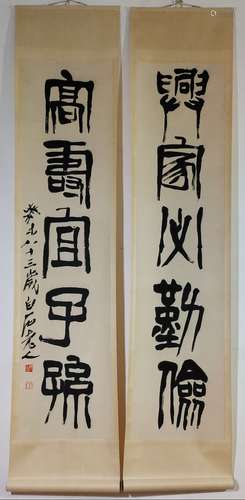 興家必勤儉
高壽宜子孫
癸未八十三歲白石老人